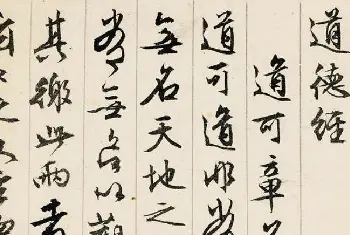 道德經
道可章
道可道非常
無名天地之
常無欲以觀
其徼此兩者